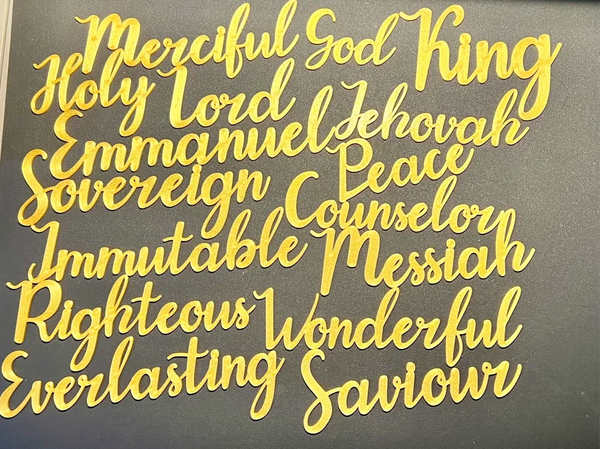 Merciful God King
Holy Lord
Emmanuel Jehovah
Sovereign Peace
Counselor
Immutable Messiah
Righteous Wonderful
Everlasting Saviour